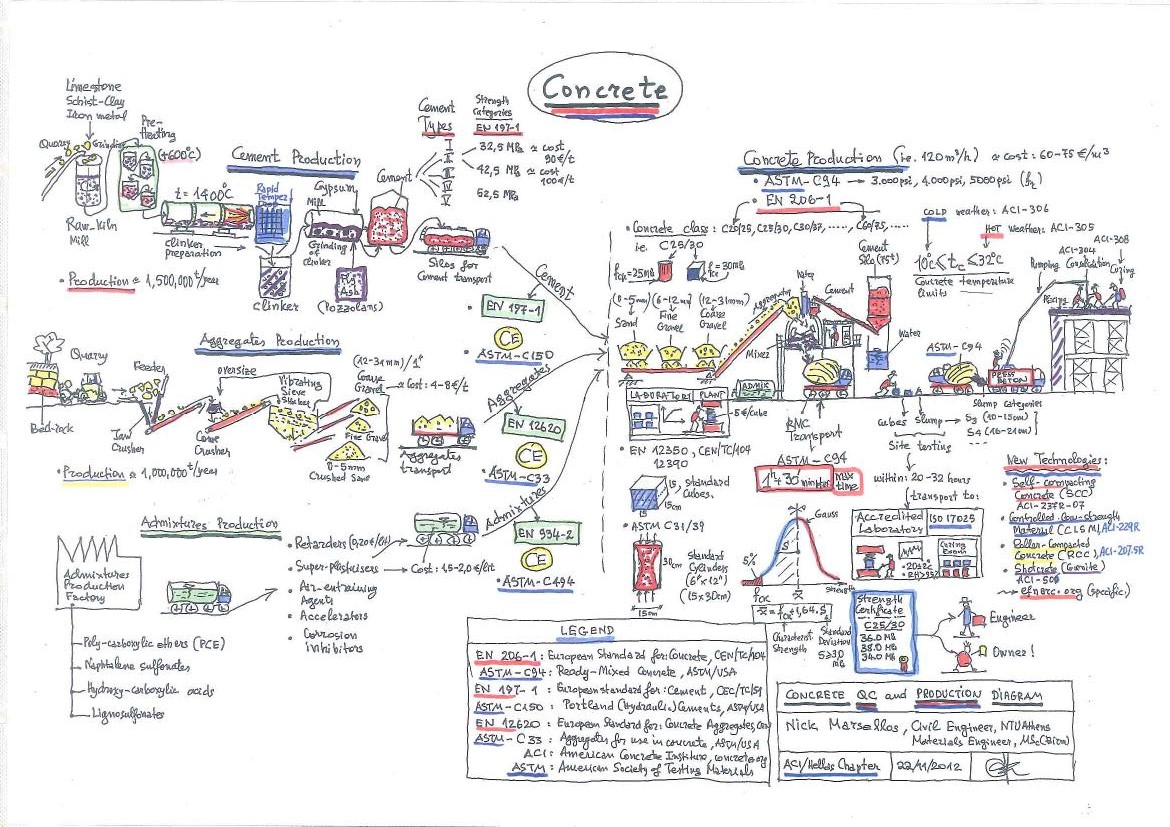 Concrete
Limestone
Schist-Clay
Iron metal
Quarry
Grinding
Pre-
Heating
(+600°C)
Raw-Kiln
Mill
Cement Production
t = 1400°C
clinker
preparation
Rapid
Temper
clinker
Gypsum
Mill
Grinding
of
clinker
Fly
Ash
(Pozzolans)
Cement
Cement
Types
I
II
III
IV
V
Strength
Categories
EN 197-1
32,5 MPa ≈ cost
90€/t
42,5 MPa ≈ cost
100€/t
52,5 MPa
Silos for
Cement transport
• Production ≈ 1,500,000 t/year
Cement
• EN 197-1
CE
• ASTM-C150
Aggregates Production
Quarry
Bedrock
Feeder
Jaw
Crusher
oversize
Cone
Crusher
Vibrating
Sieve
Shaker
(12-31mm)/1"
Coarse
Gravel
Fine Gravel
0-5mm
Crushed Sand
≈ Cost: 4-8€/t
Aggregates
transport
• Production ≈ 1,000,000 t/year
Aggregates
• EN 12620
CE
• ASTM-C33
Admixtures Production
Admixtures
Production
Factory
Poly-carboxylic ethers (PCE)
Naphtalene sulfonates
Hydroxy-carboxylic acids
Lignosulfonates
• Retarders
• Super-plasticisers → Cost: 1.5-2,0€/lit
• Air-entraining
Agents
• Accelerators
• Corrosion
inhibitors
Admixtures
• EN 934-2
CE
• ASTM-C494
Concrete Production (ie. 120m³/h) ≈ cost: 60-75€/m³
• ASTM-C94 → 3.000psi, 4.000psi, 5000psi
• EN 206-1
• Concrete class: C20/25, C25/30, C30/37, ....., C60/75, .....
ie. C25/30
fck=25MPa
fck=30MPa
(0-5mm) (6-12mm) (12-31mm)
Sand
Fine
Gravel
Coarse
Gravel
Aggregates
Water
Cement
Mixer
Cement
Silo (75t)
Water
COLD weather: ACI-306
HOT weather: ACI-305
10°C ≤ tc ≤ 32°C
Concrete temperature
limits
ACI-304
ACI-308
Pumping Consolidation Curing
Pump
LABORATORY PLANT
ADMIX
5€/cube
RMC
Transport
ASTM-C94
1h + 30' minutes
max
time
ASTM-C94
PRESS
BETON
Cubes
Slump
Slump categories
S3 (10-15cm)
S4 (16-21cm)
Site testing
within: 20-32 hours
(transport to:
Accredited
Laboratory
ISO 17025
Curing
Room
• EN 12350, CEN/TC/104
12390
15
15
15cm
Standard
Cubes.
• ASTM C31/39
30cm
15cm
Standard
Cylinders
(6"x12")
(15x30cm)
Gauss
5%
S
fck
x̄
Strength
x̄ = fck + 1,64.S
Characterist
Strength
Standard
Deviation
S≥3,0
MPa
Strength
Certificate
C25/30
36.0 MPa
38.0 MPa
34.0 MPa
Engineer
Owner!
New Technologies:
• Self-compacting
Concrete (SCC)
ACI-237R-07
• Controlled-Low-strength
Material (CLSM), ACI-229R
• Roller-Compacted
Concrete (RCC), ACI-207.5R
• Shotcrete (Gunite)
ACI-506
→ efnarc.org (specific.)
LEGEND
EN 206-1: European Standard for: Concrete, CEN/TC/104
ASTM-C94: Ready-Mixed Concrete, ASTM/USA
EN 197-1 : European standard for: Cement, CEC/TC/51
ASTM-C150 : Portland (Hydraulic) Cements, ASTM/USA
EN 12620 : European Standard for: Concrete Aggregates, CEN
ASTM-C33 : Aggregates for use in concrete, ASTM/USA
ACI: American Concrete Institute, concrete.org
ASTM: American Society of Testing Materials
CONCRETE QC and PRODUCTION DIAGRAM
Nick Marsellos, Civil Engineer, NTUAthens
Materials Engineer, MSc(Birm)
ACI/Hellas Chapter
22/11/2012